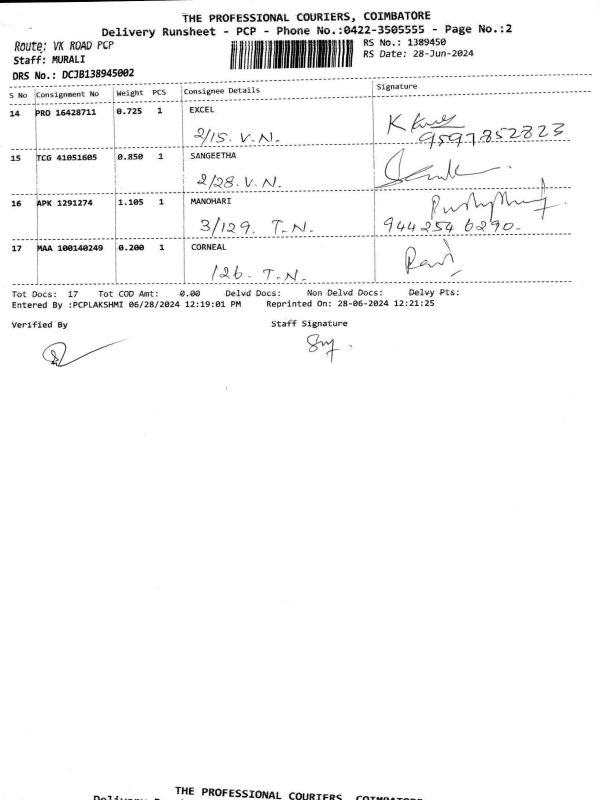 THE PROFESSIONAL COURIERS, COIMBATORE
Delivery Runsheet - PCP - Phone No.:0422-3505555 - Page No.:2
Route: VK ROAD PCP RS No.: 1389450
Staff: MURALI RS Date: 28-Jun-2024
DRS No.: DCJB138945002
S No Consignment No Weight PCS Consignee Details Signature
14 PRO 16428711 0.725 1 EXCEL
2/15. V.N. 9597852823
15 TCG 41051605 0.850 1 SANGEETHA
2/28. V.N.
16 APK 1291274 1.105 1 MANOHARI
3/129. T.N. 9442546290.
17 MAA 100140249 0.200 1 CORNEAL
126. T.N.
Tot Docs: 17 Tot COD Amt: 0.00 Delvd Docs: Non Delvd Docs: Delvy Pts:
Entered By :PCPLAKSHMI 06/28/2024 12:19:01 PM Reprinted On: 28-06-2024 12:21:25
Verified By Staff Signature
THE PROFESSIONAL COURIERS, COIMBATORE